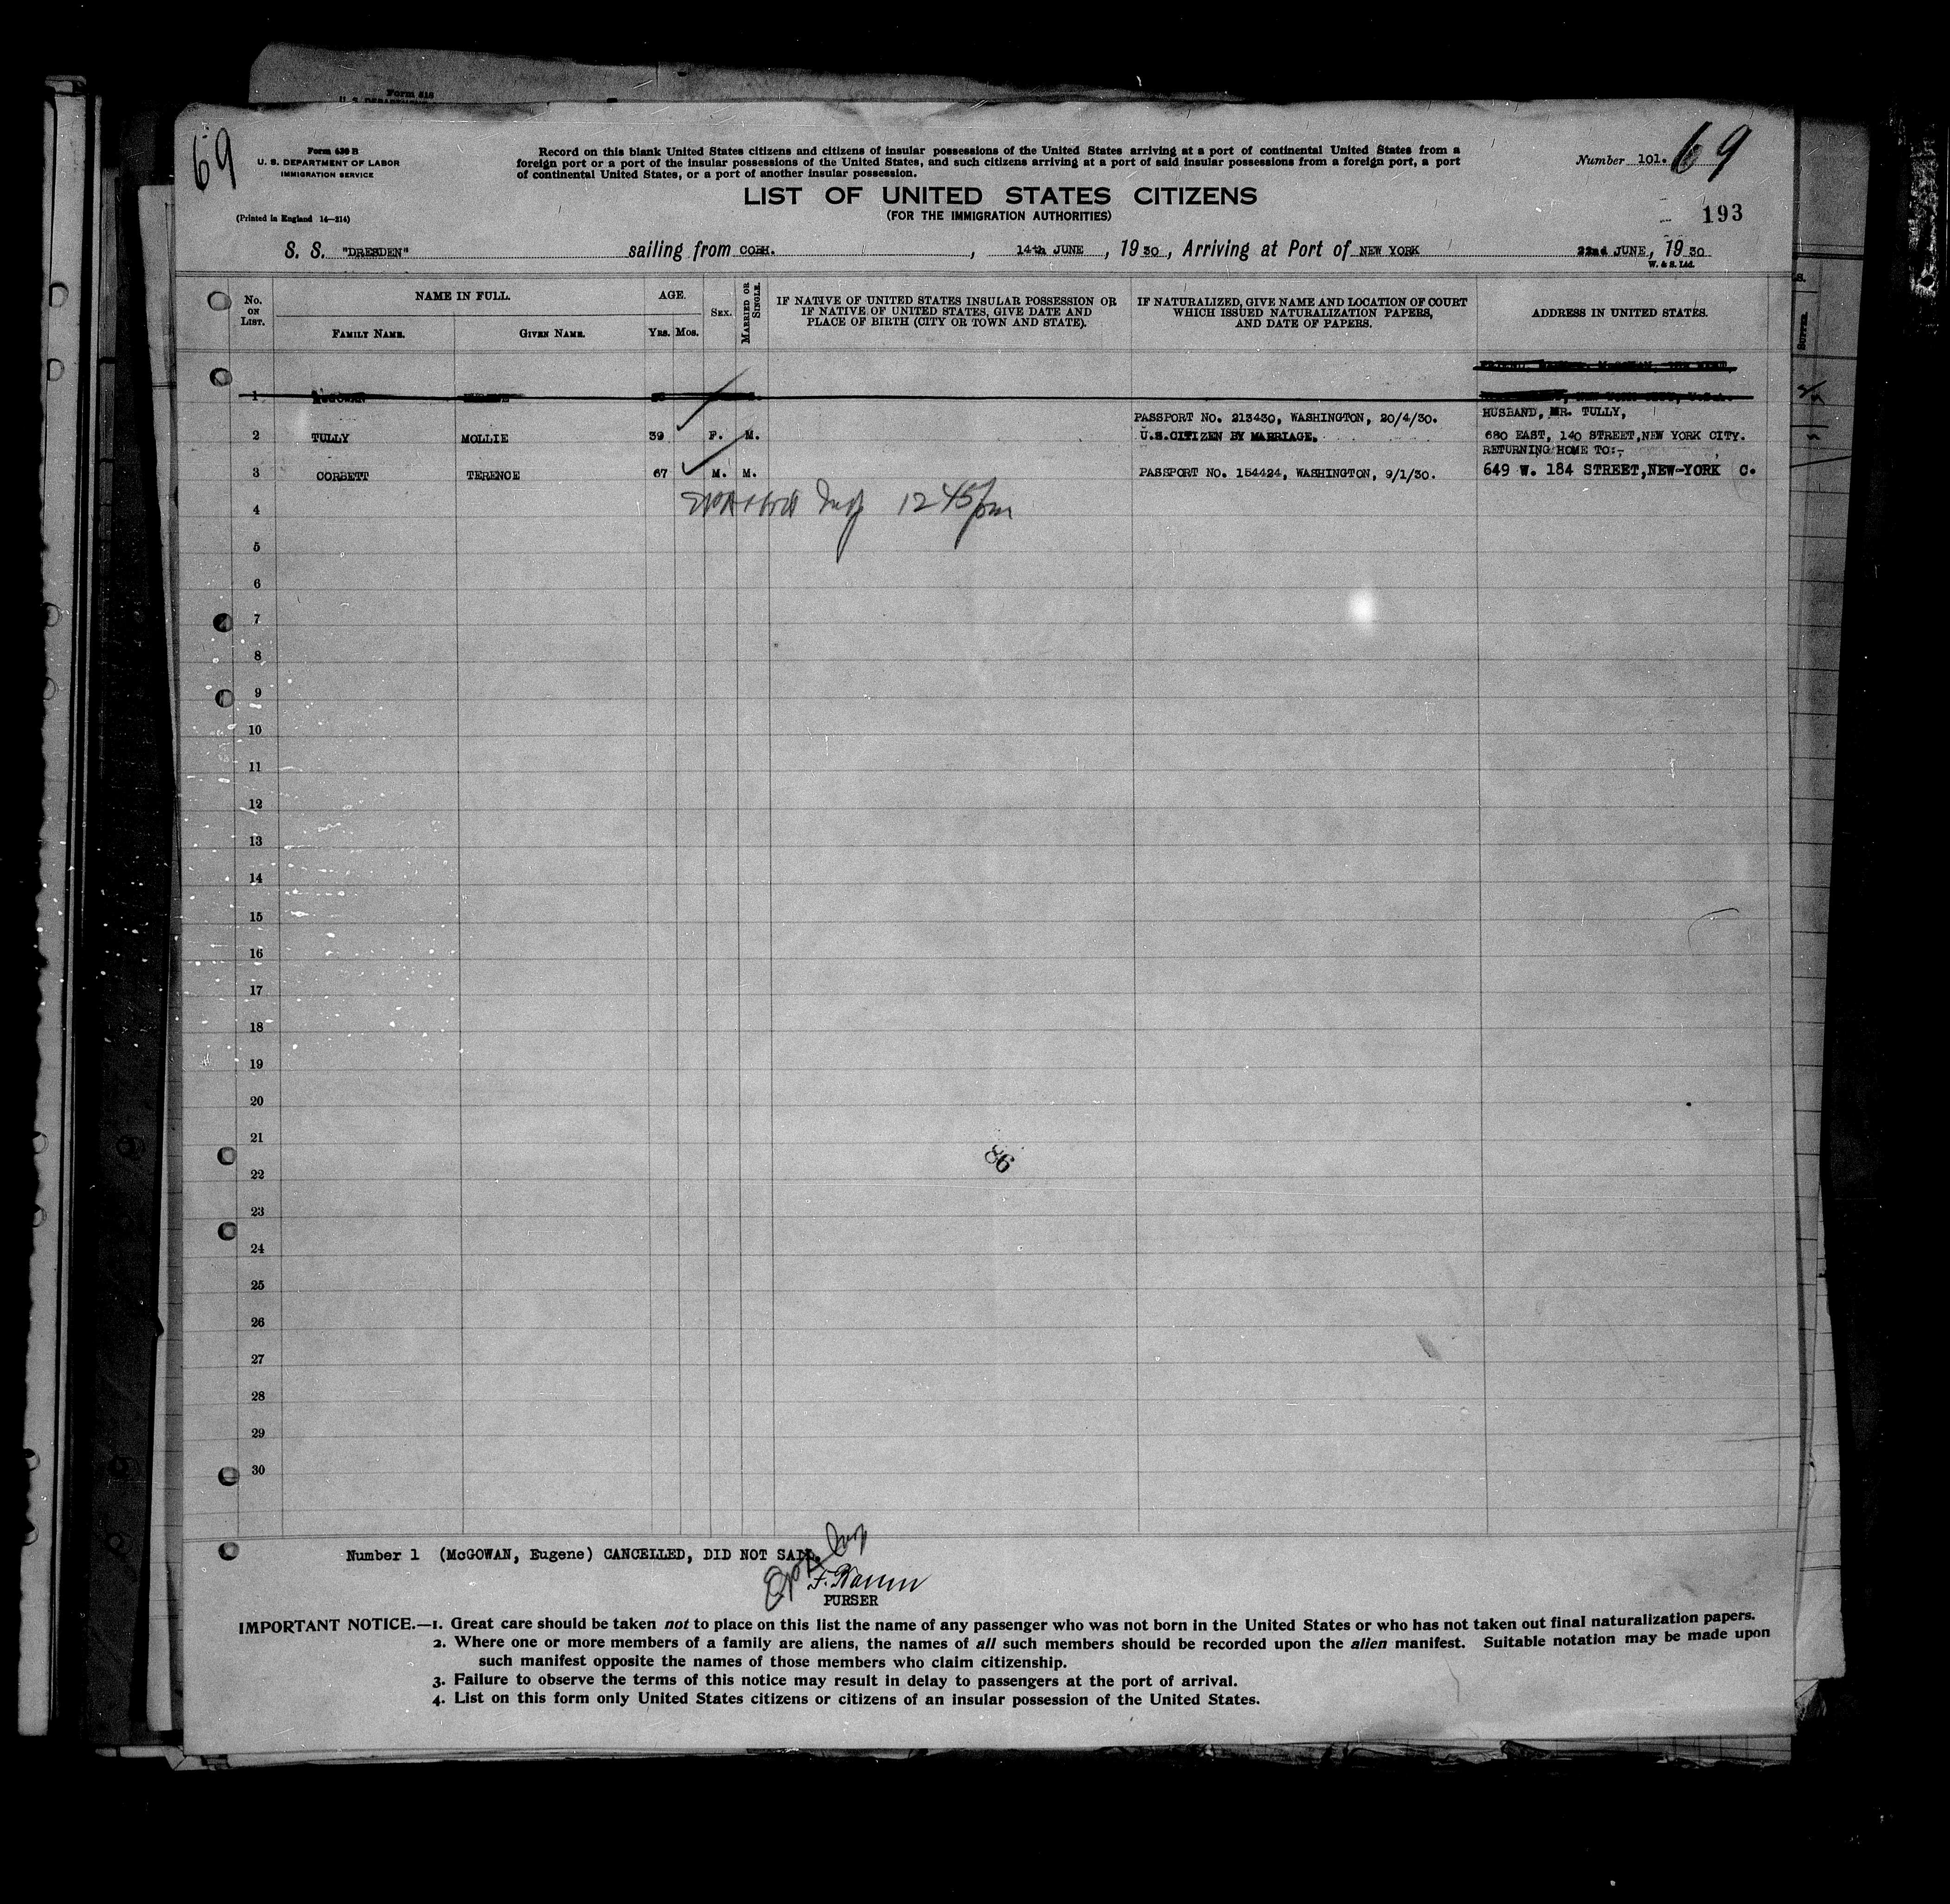 Form 630 B
U. S. DEPARTMENT OF LABOR
IMMIGRATION SERVICE
(Printed in England 14—214)
69
Record on this blank United States citizens and citizens of insular possessions of the United States arriving at a port of continental United States from a
foreign port or a port of the insular possessions of the United States, and such citizens arriving at a port of said insular possessions from a foreign port, a port
of continental United States, or a port of another insular possession.
Number 101. 69
LIST OF UNITED STATES CITIZENS
(FOR THE IMMIGRATION AUTHORITIES)
193
S. S. "DRESDEN" sailing from COBH. , 14th JUNE , 19 30 , Arriving at Port of NEW YORK 22nd JUNE , 19 30
W. & S. Ltd.
No. ON LIST.
NAME IN FULL.
FAMILY NAME. GIVEN NAME.
AGE.
YRS. MOS.
SEX.
MARRIED OR SINGLE.
IF NATIVE OF UNITED STATES INSULAR POSSESSION OR
IF NATIVE OF UNITED STATES, GIVE DATE AND
PLACE OF BIRTH (CITY OR TOWN AND STATE).
IF NATURALIZED, GIVE NAME AND LOCATION OF COURT
WHICH ISSUED NATURALIZATION PAPERS,
AND DATE OF PAPERS.
ADDRESS IN UNITED STATES.
1 McGOWAN
PASSPORT NO. 213430, WASHINGTON, 20/4/30. HUSBAND, MR. TULLY,
2 TULLY MOLLIE 39 F. M. U.S.CITIZEN BY MARRIAGE. 680 EAST, 140 STREET,NEW YORK CITY.
RETURNING HOME TO:-
3 CORBETT TERENCE 67 M. M. PASSPORT NO. 154424, WASHINGTON, 9/1/30. 649 W. 184 STREET,NEW-YORK C.
4 Insp 1245pm
5
6
7
8
9
10
11
12
13
14
15
16
17
18
19
20
21
86
22
23
24
25
26
27
28
29
30
Number 1 (McGOWAN, Eugene) CANCELLED, DID NOT SAIL.
PURSER
IMPORTANT NOTICE.—1. Great care should be taken not to place on this list the name of any passenger who was not born in the United States or who has not taken out final naturalization papers.
2. Where one or more members of a family are aliens, the names of all such members should be recorded upon the alien manifest. Suitable notation may be made upon
such manifest opposite the names of those members who claim citizenship.
3. Failure to observe the terms of this notice may result in delay to passengers at the port of arrival.
4. List on this form only United States citizens or citizens of an insular possession of the United States.